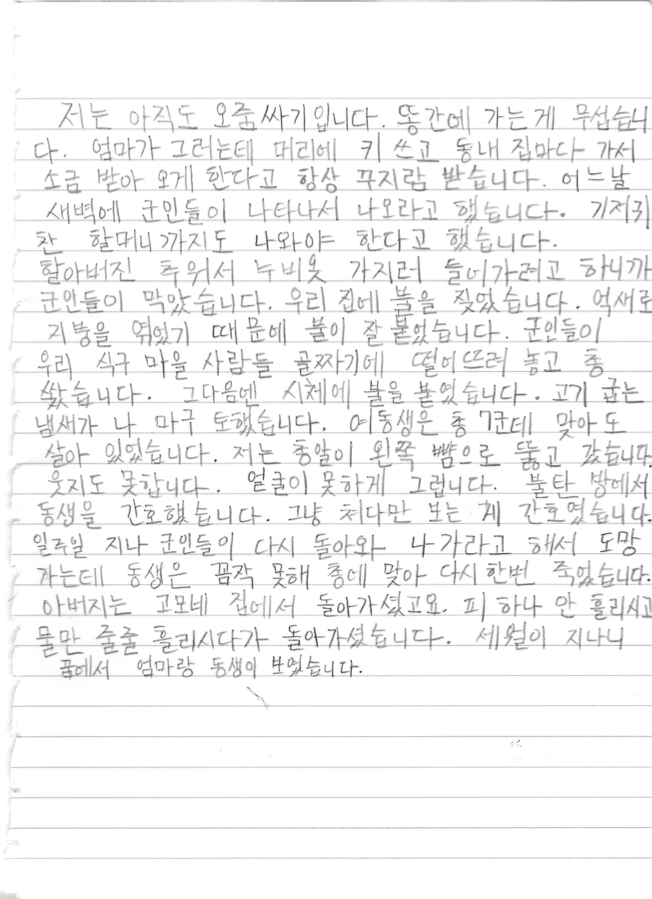 저는 아직도 오줌싸기입니다. 똥간에 가는게 무섭습니
다. 엄마가 그러는테 머리에 키 쓰고 동내 집마다 가서
소금 받아 오게 한다고 항상 꾸지람 받습니다. 어느날
새벽에 군인들이 나타나서 나오라고 했습니다. 기저귀
찬 할머니까지도 나와야 한다고 했습니다.
할아버진 추워서 누비옷 가지러 들어가려고 하니까
군인들이 막았습니다. 우리 집에 불을 짖었습니다. 억새로
지붕을 엮었기 때문에 불이 잘 붙었습니다. 군인들이
우리 식구 마을 사람들 골짜기에 떨어뜨려 놓고 총
쐈습니다. 그다음엔 시체에 불을 붙였습니다. 고기 굽는
냄새가 나 마구 토했습니다. 여동생은 총 7군테 맞아도
살아 있었습니다. 저는 총알이 왼쪽 뺨으로 뚫고 갔습니다.
웃지도 못합니다. 얼굴이 못하게 그럽니다. 불탄 방에서
동생을 간호했습니다. 그냥 쳐다만 보는 게 간호였습니다.
일주일 지나 군인들이 다시 돌아와 나가라고 해서 도망
가는테 동생은 꼼짝 못해 총에 맞아 다시한번 죽었습니다.
아버지는 고모네 집에서 돌아가셨고요. 피 하나 안 흘리시고
물만 줄줄 흘리시다가 돌아가셨습니다. 세월이 지나니
꿈에서 엄마랑 동생이 보였습니다.